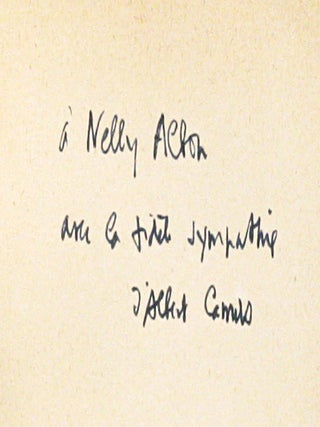 à Nelly Acton
avec la fidèle sympathie
d'Albert Camus